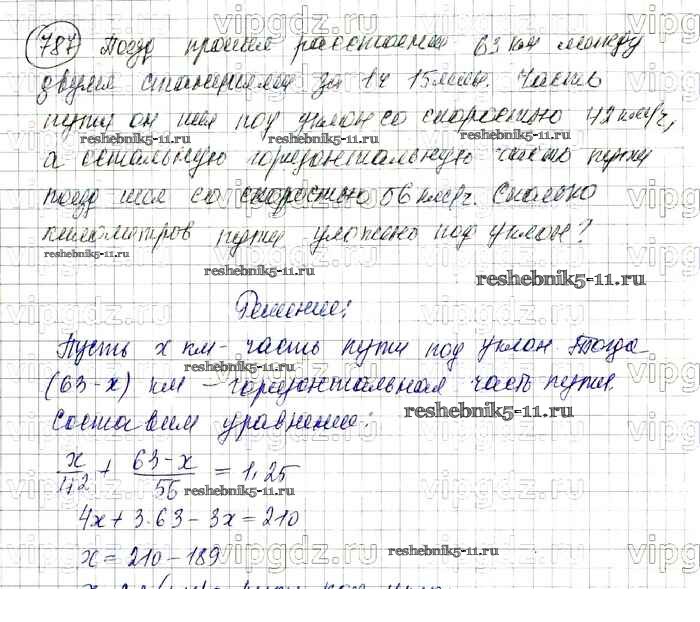 787 Поезд прошел расстояние 63 км между
двумя станциями за 1ч 15мин. Часть
пути он шел под уклон со скоростью 42 км/ч,
а остальную горизонтальную часть пути
поезд шел со скоростью 56 км/ч. Сколько
километров пути уложено под уклон?
Решение:
Пусть x км - часть пути под уклон Тогда
(63-x) км - горизонтальная часть пути.
Составим уравнение:
x/42 + (63-x)/56 = 1,25
4x + 3·63 - 3x = 210
x = 210 - 189
vipgdz.ru
reshebnik5-11.ru